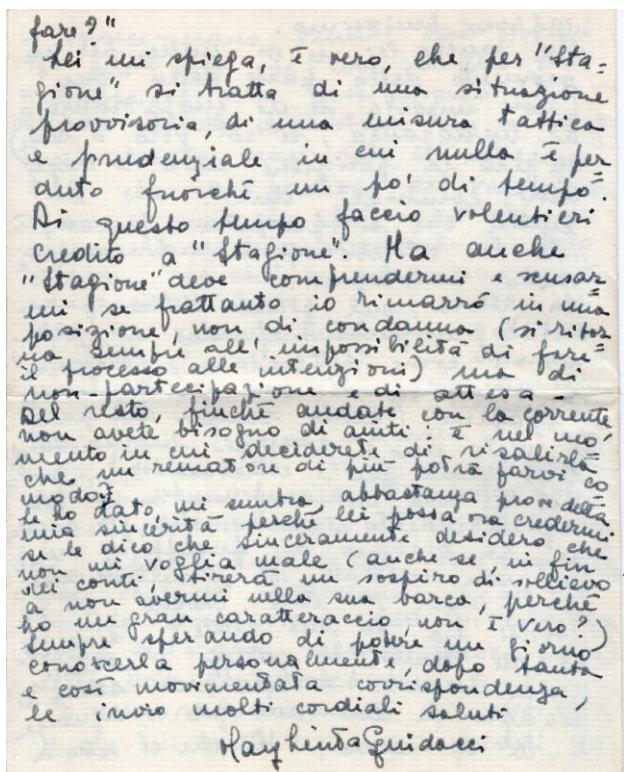 fare?"
Lei mi spiega, è vero, che per "Sta=
gione" si tratta di una situazione
provvisoria, di una misura tattica
e prudenziale in cui nulla è per=
duto fuorché un po' di tempo.
Di questo tempo faccio volentieri
credito a "Stagione". Ma anche
"Stagione" deve comprendermi e scusar=
mi se frattanto io rimarrò in una
posizione, non di condanna (si ritor=
na sempre all'impossibilità di fare
il processo alle intenzioni) ma di
non-partecipazione e di attesa -
Del resto, finché andate con la corrente
non avete bisogno di aiuti: è nel mo=
mento in cui deciderete di risalirla
che un rematore di più potrà farvi co=
modo!
Le ho dato, mi sembra, abbastanza prove della
mia sincerità perché lei possa ora credermi
se le dico che sinceramente desidero che
non mi voglia male (anche se, in fin
dei conti, tirerà un sospiro di sollievo
a non avermi nella sua barca, perché
ho un gran caratteraccio, non è vero?)
Sempre sperando di potere un giorno
conoscerla personalmente, dopo tanta
e così movimentata corrispondenza,
le invio molti cordiali saluti
Margherita Guidacci